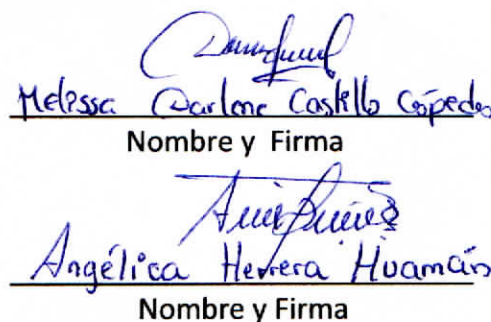 Melissa Darlene Castillo Céspedes
Nombre y Firma
Angélica Herrera Huamán
Nombre y Firma